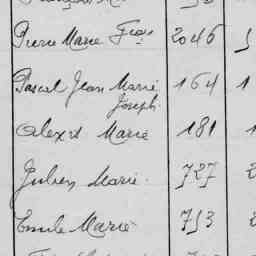 Pierre Marie Fçois 2046
Pascal Jean Marie 164 1
Joseph
Alexis Marie 181 1
Julien Marie 727 2
Emile Marie 753 2